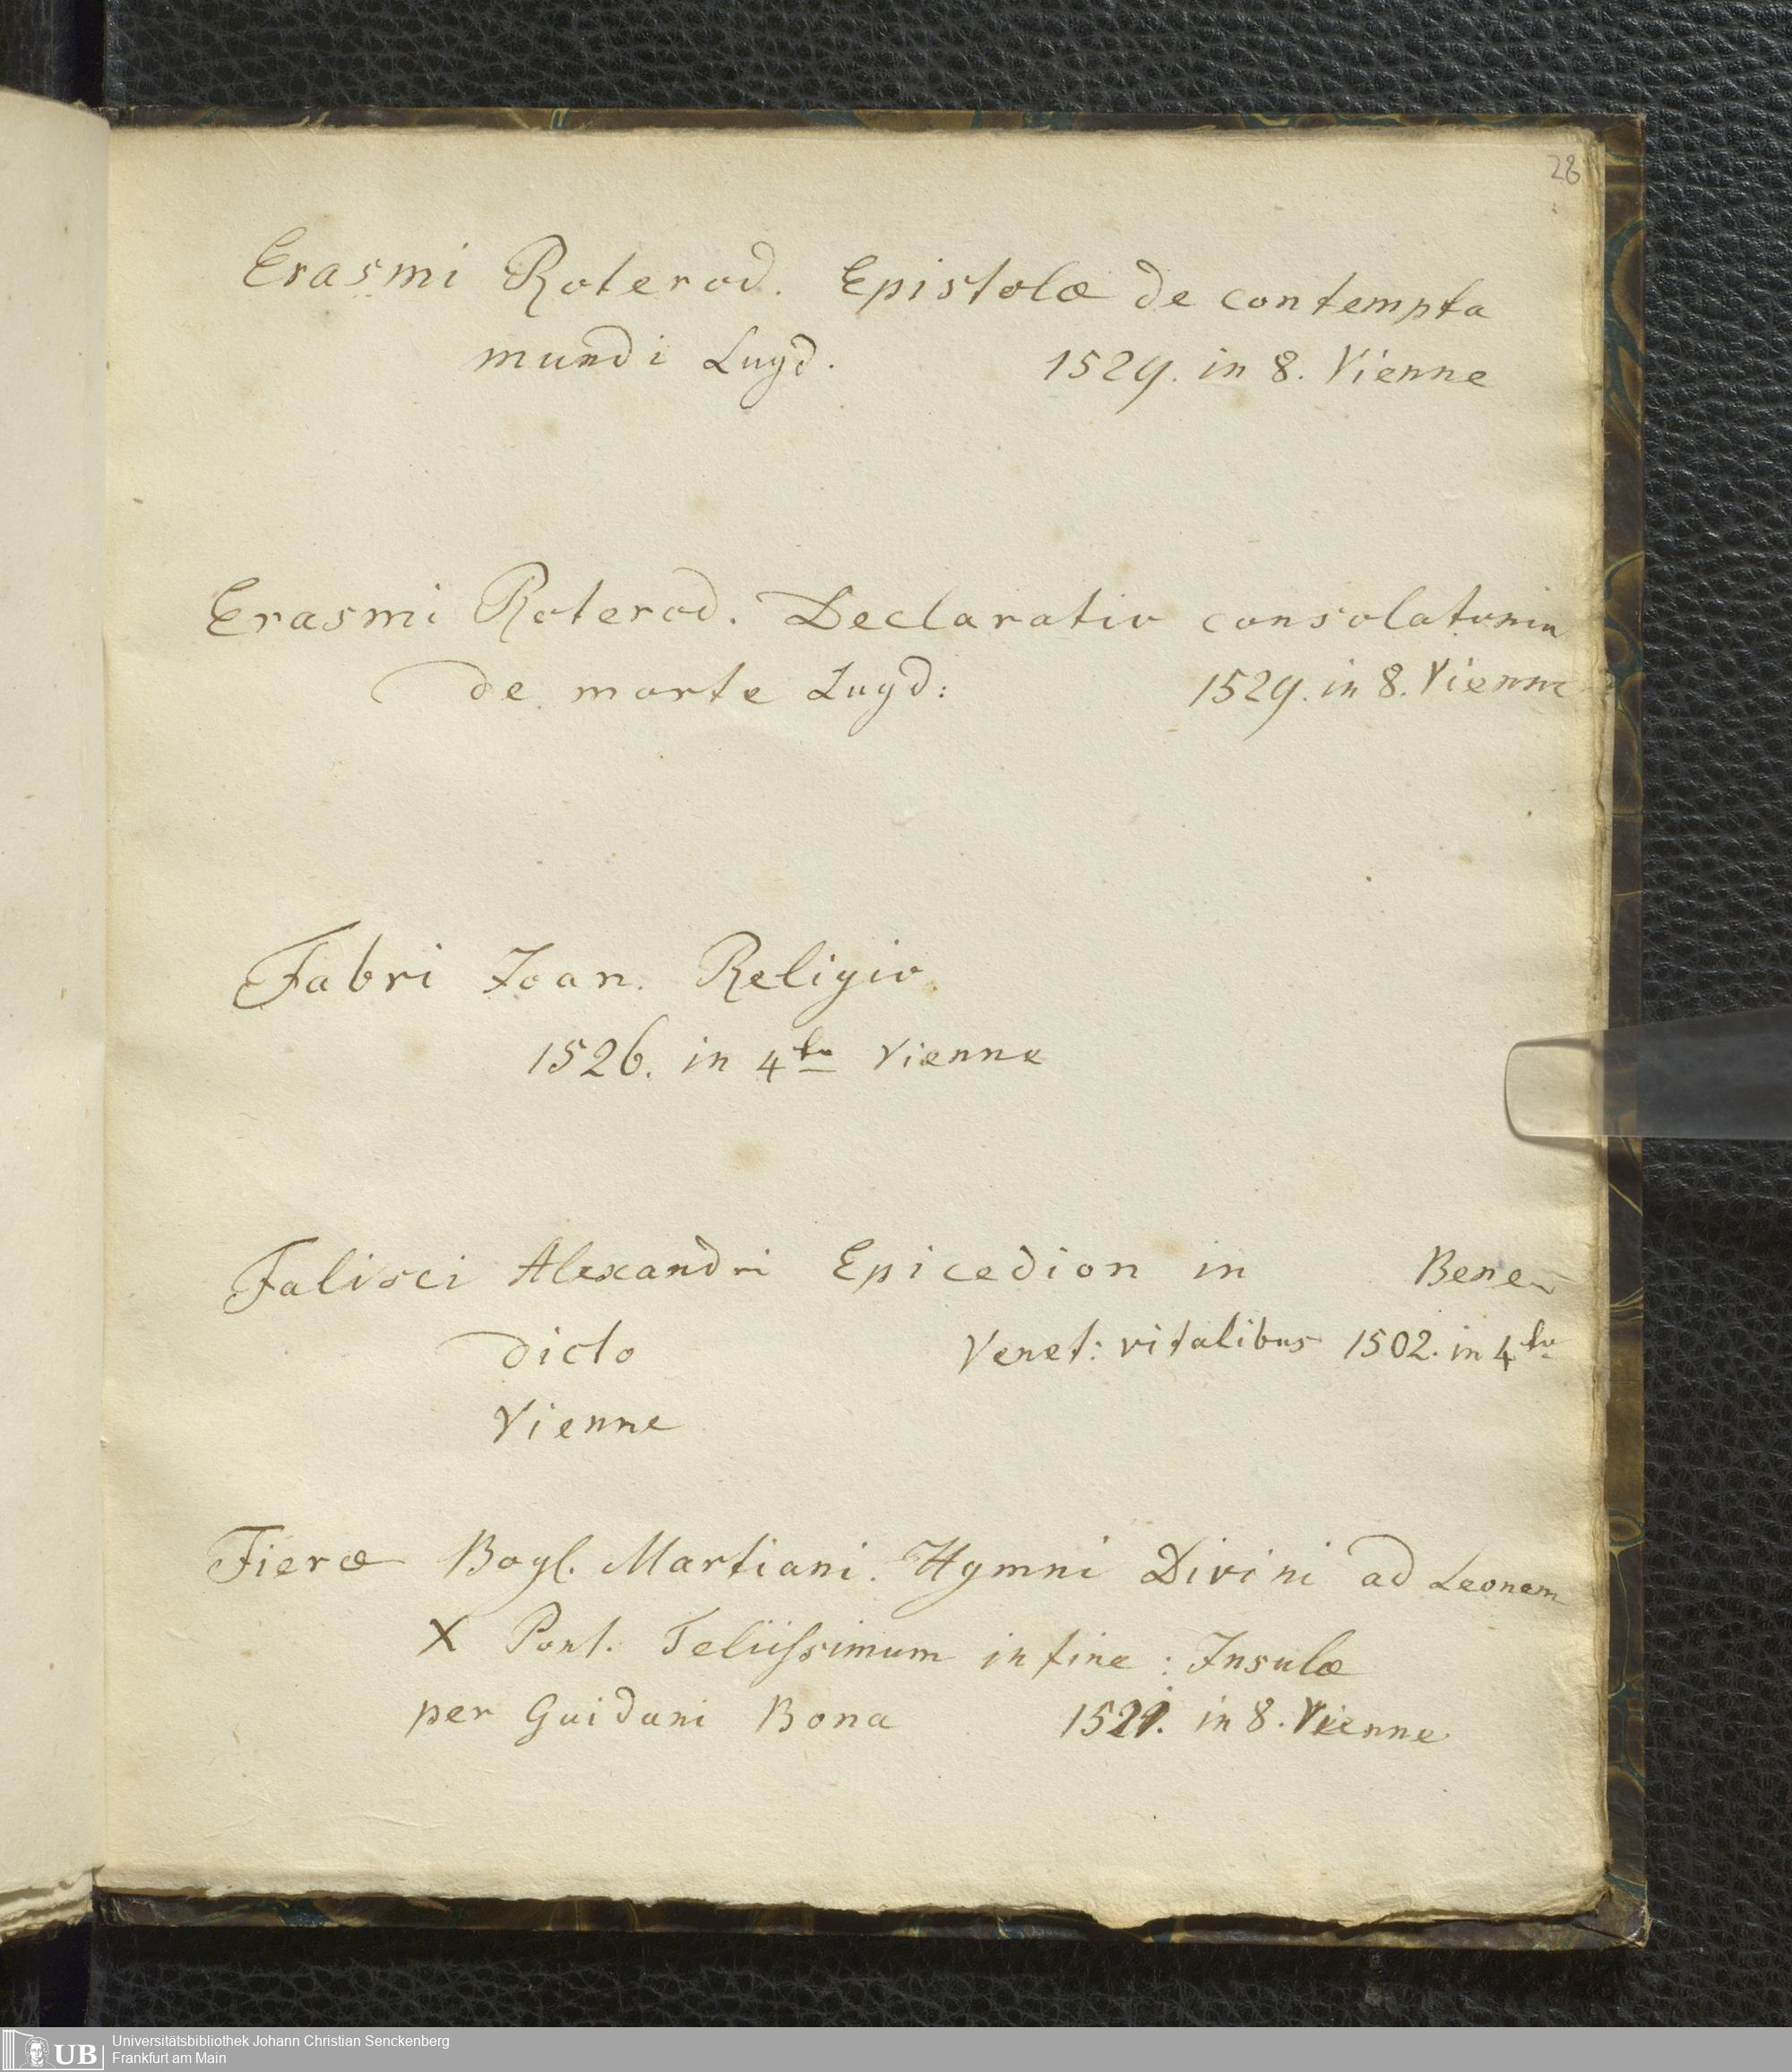 28
Erasmi Roterod. Epistolæ de contempta
mundi Lugd. 1529. in 8. Vienne
Erasmi Roterod. Declaratio consolatoria
de morte Lugd: 1529. in 8. Vienne
Fabri Joan. Religio
1526. in 4to Vienne
Falisci Alexandri Epicedion in Bene-
dicto Venet: vitalibus 1502. in 4to
Vienne
Fieræ Bagl. Martiani. Hymni Divini ad Leonem
X Pont. in fine: Insulæ
per Guidoni Bona 1521. in 8. Vienne
UB Universitätsbibliothek Johann Christian Senckenberg
Frankfurt am Main